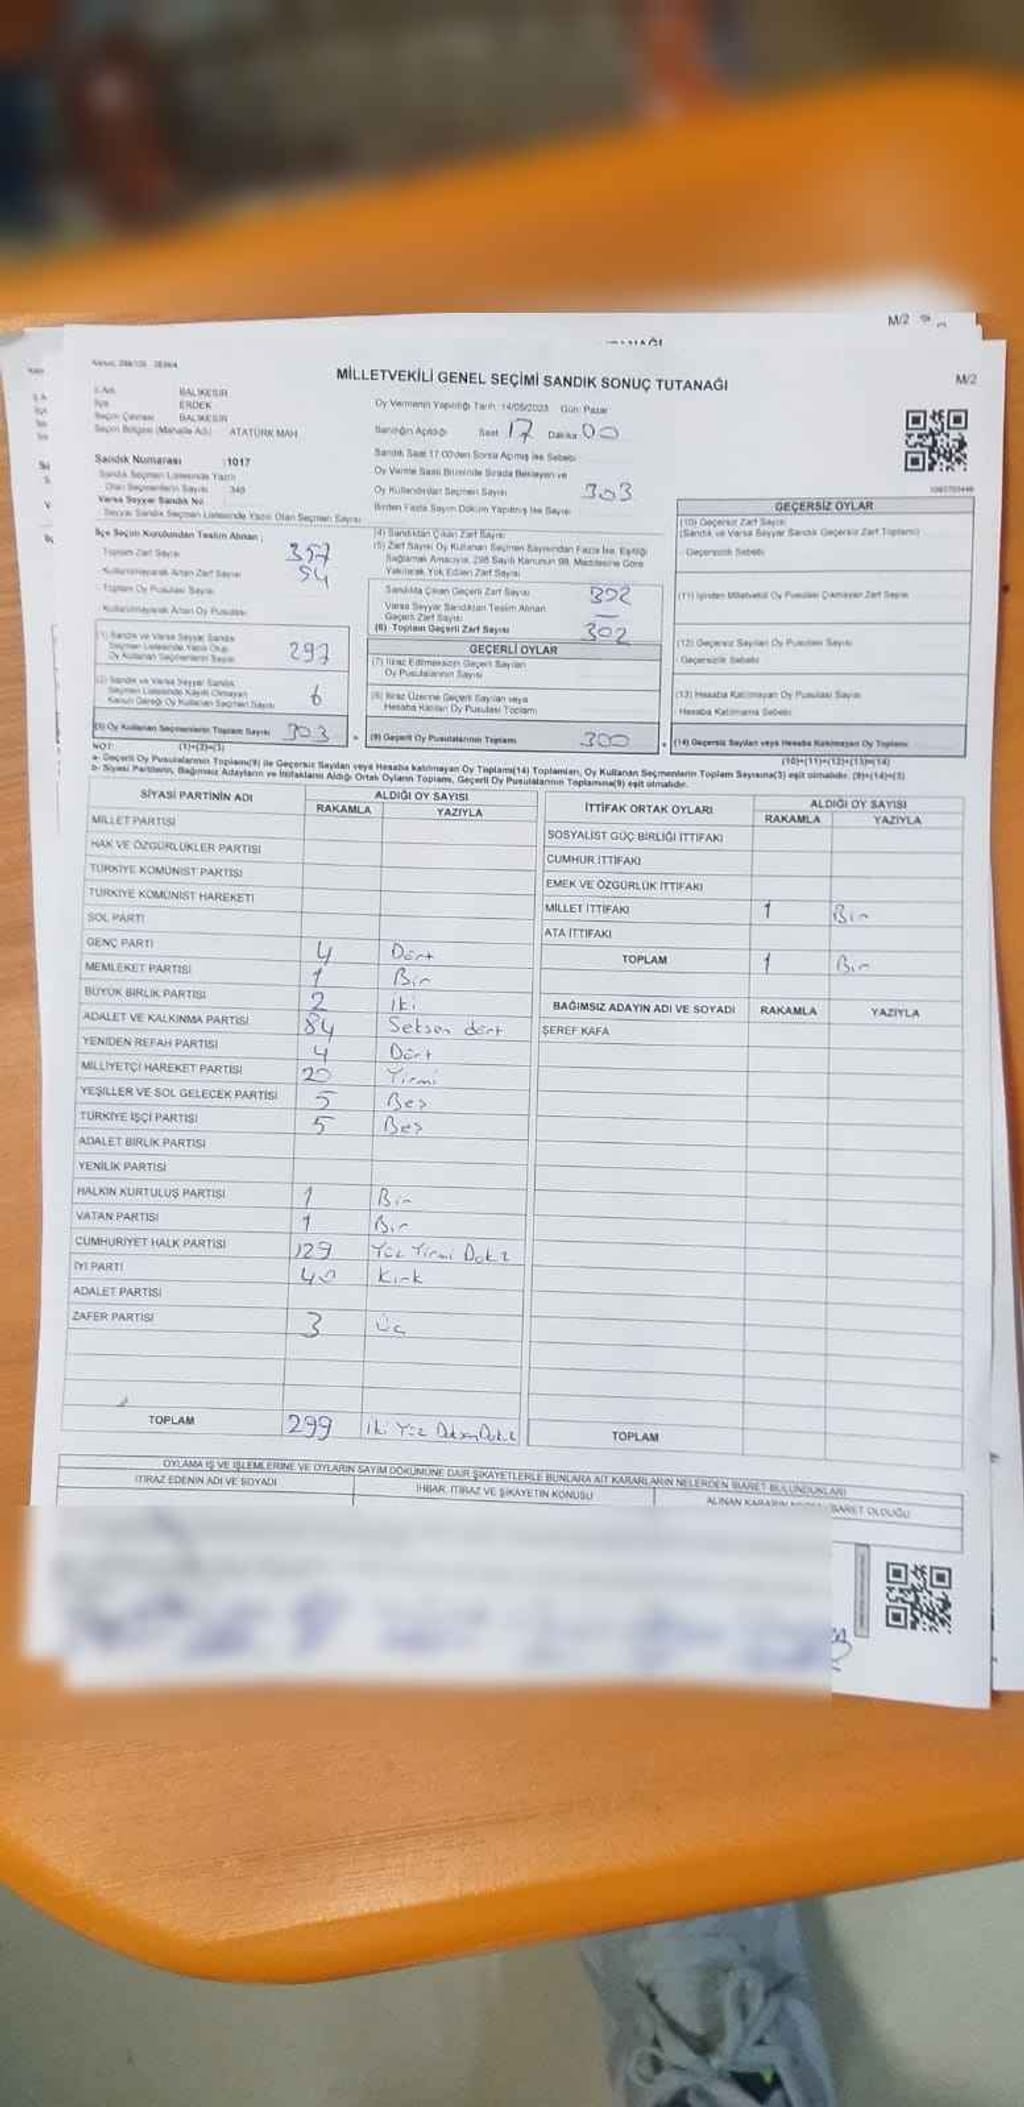 M/2
MİLLETVEKİLİ GENEL SEÇİMİ SANDIK SONUÇ TUTANAĞI
M/2
BALIKESİR
İlçe ERDEK
Seçim Çevresi BALIKESİR
Seçim Bölgesi (Mahalle Adı) ATATÜRK MAH
Sandık Numarası :1017
Sandık Seçmen Listesinde Yazılı
Olan Seçmenlerin Sayısı 340
Varsa Seyyar Sandık No
Seyyar Sandık Seçmen Listesinde Yazılı Olan Seçmen Sayısı
Oy Vermenin Yapıldığı Tarih :14/05/2023 Gün: Pazar
Sandığın Açıldığı Saat 17 Dakika 00
Sandık Saat 17:00'den Sonra Açılmış İse Sebebi
Oy Verme Saati Bitiminde Sırada Bekleyen ve
Oy Kullandırılan Seçmen Sayısı 303
Birden Fazla Sayım Döküm Yapılmış İse Sayısı
İlçe Seçim Kurulundan Teslim Alınan ;
Toplam Zarf Sayısı 357
Kullanılmayarak Artan Zarf Sayısı 54
Toplam Oy Pusulası Sayısı
Kullanılmayarak Artan Oy Pusulası
(1) Sandık ve Varsa Seyyar Sandık
Seçmen Listesinde Yazılı Olup
Oy Kullanan Seçmenlerin Sayısı 297
(2) Sandık ve Varsa Seyyar Sandık
Seçmen Listesinde Kayıtlı Olmayan
Kanun Gereği Oy Kullanan Seçmen Sayısı 6
(3) Oy Kullanan Seçmenlerin Toplam Sayısı 303
(1)+(2)=(3)
(4) Sandıktan Çıkan Zarf Sayısı
(5) Zarf Sayısı Oy Kullanan Seçmen Sayısından Fazla İse, Eşitliği
Sağlamak Amacıyla, 298 Sayılı Kanunun 98. Maddesine Göre
Yakılarak Yok Edilen Zarf Sayısı
Sandıkta Çıkan Geçerli Zarf Sayısı 302
Varsa Seyyar Sandıktan Teslim Alınan
Geçerli Zarf Sayısı —
(6) Toplam Geçerli Zarf Sayısı 302
GEÇERLİ OYLAR
(7) İtiraz Edilmeksizin Geçerli Sayılan
Oy Pusulalarının Sayısı
(8) İtiraz Üzerine Geçerli Sayılan veya
Hesaba Katılan Oy Pusulası Toplamı
(9) Geçerli Oy Pusulalarının Toplamı 300
GEÇERSİZ OYLAR
(10) Geçersiz Zarf Sayısı
(Sandık ve Varsa Seyyar Sandık Geçersiz Zarf Toplamı)
Geçersizlik Sebebi
(11) İçinden Milletvekili Oy Pusulası Çıkmayan Zarf Sayısı
(12) Geçersiz Sayılan Oy Pusulası Sayısı
Geçersizlik Sebebi
(13) Hesaba Katılmayan Oy Pusulası Sayısı
Hesaba Katılmama Sebebi
(14) Geçersiz Sayılan veya Hesaba Katılmayan Oy Toplamı
(10)+(11)+(12)+(13)=(14)
NOT:
a- Geçerli Oy Pusulalarının Toplamı(9) ile Geçersiz Sayılan veya Hesaba katılmayan Oy Toplamı(14) Toplamları, Oy Kullanan Seçmenlerin Toplam Sayısına(3) eşit olmalıdır. (9)+(14)=(3)
b- Siyasi Partilerin, Bağımsız Adayların ve İttifakların Aldığı Ortak Oyların Toplamı, Geçerli Oy Pusulalarının Toplamına(9) eşit olmalıdır.
SİYASİ PARTİNİN ADI ALDIĞI OY SAYISI
RAKAMLA YAZIYLA
MİLLET PARTİSİ
HAK VE ÖZGÜRLÜKLER PARTİSİ
TÜRKİYE KOMÜNİST PARTİSİ
TÜRKİYE KOMÜNİST HAREKETİ
SOL PARTİ
GENÇ PARTİ 4 Dört
MEMLEKET PARTİSİ 1 Bir
BÜYÜK BİRLİK PARTİSİ 2 İki
ADALET VE KALKINMA PARTİSİ 84 Seksen dört
YENİDEN REFAH PARTİSİ 4 Dört
MİLLİYETÇİ HAREKET PARTİSİ 20 Yirmi
YEŞİLLER VE SOL GELECEK PARTİSİ 5 Beş
TÜRKİYE İŞÇİ PARTİSİ 5 Beş
ADALET BİRLİK PARTİSİ
YENİLİK PARTİSİ
HALKIN KURTULUŞ PARTİSİ 1 Bir
VATAN PARTİSİ 1 Bir
CUMHURİYET HALK PARTİSİ 129 Yüz Yirmi Dokz
İYİ PARTİ 40 Kırk
ADALET PARTİSİ
ZAFER PARTİSİ 3 Üç
TOPLAM 299 İki Yüz Doksan Dokz
İTTİFAK ORTAK OYLARI ALDIĞI OY SAYISI
RAKAMLA YAZIYLA
SOSYALİST GÜÇ BİRLİĞİ İTTİFAKI
CUMHUR İTTİFAKI
EMEK VE ÖZGÜRLÜK İTTİFAKI
MİLLET İTTİFAKI 1 Bir
ATA İTTİFAKI
TOPLAM 1 Bir
BAĞIMSIZ ADAYIN ADI VE SOYADI RAKAMLA YAZIYLA
ŞEREF KAFA
TOPLAM
OYLAMA İŞ VE İŞLEMLERİNE VE OYLARIN SAYIM DÖKÜMÜNE DAİR ŞİKAYETLERLE BUNLARA AİT KARARLARIN NELERDEN İBARET BULUNDUKLARI
İTİRAZ EDENİN ADI VE SOYADI İHBAR, İTİRAZ VE ŞİKAYETİN KONUSU ALINAN KARARIN İBARET OLDUĞU